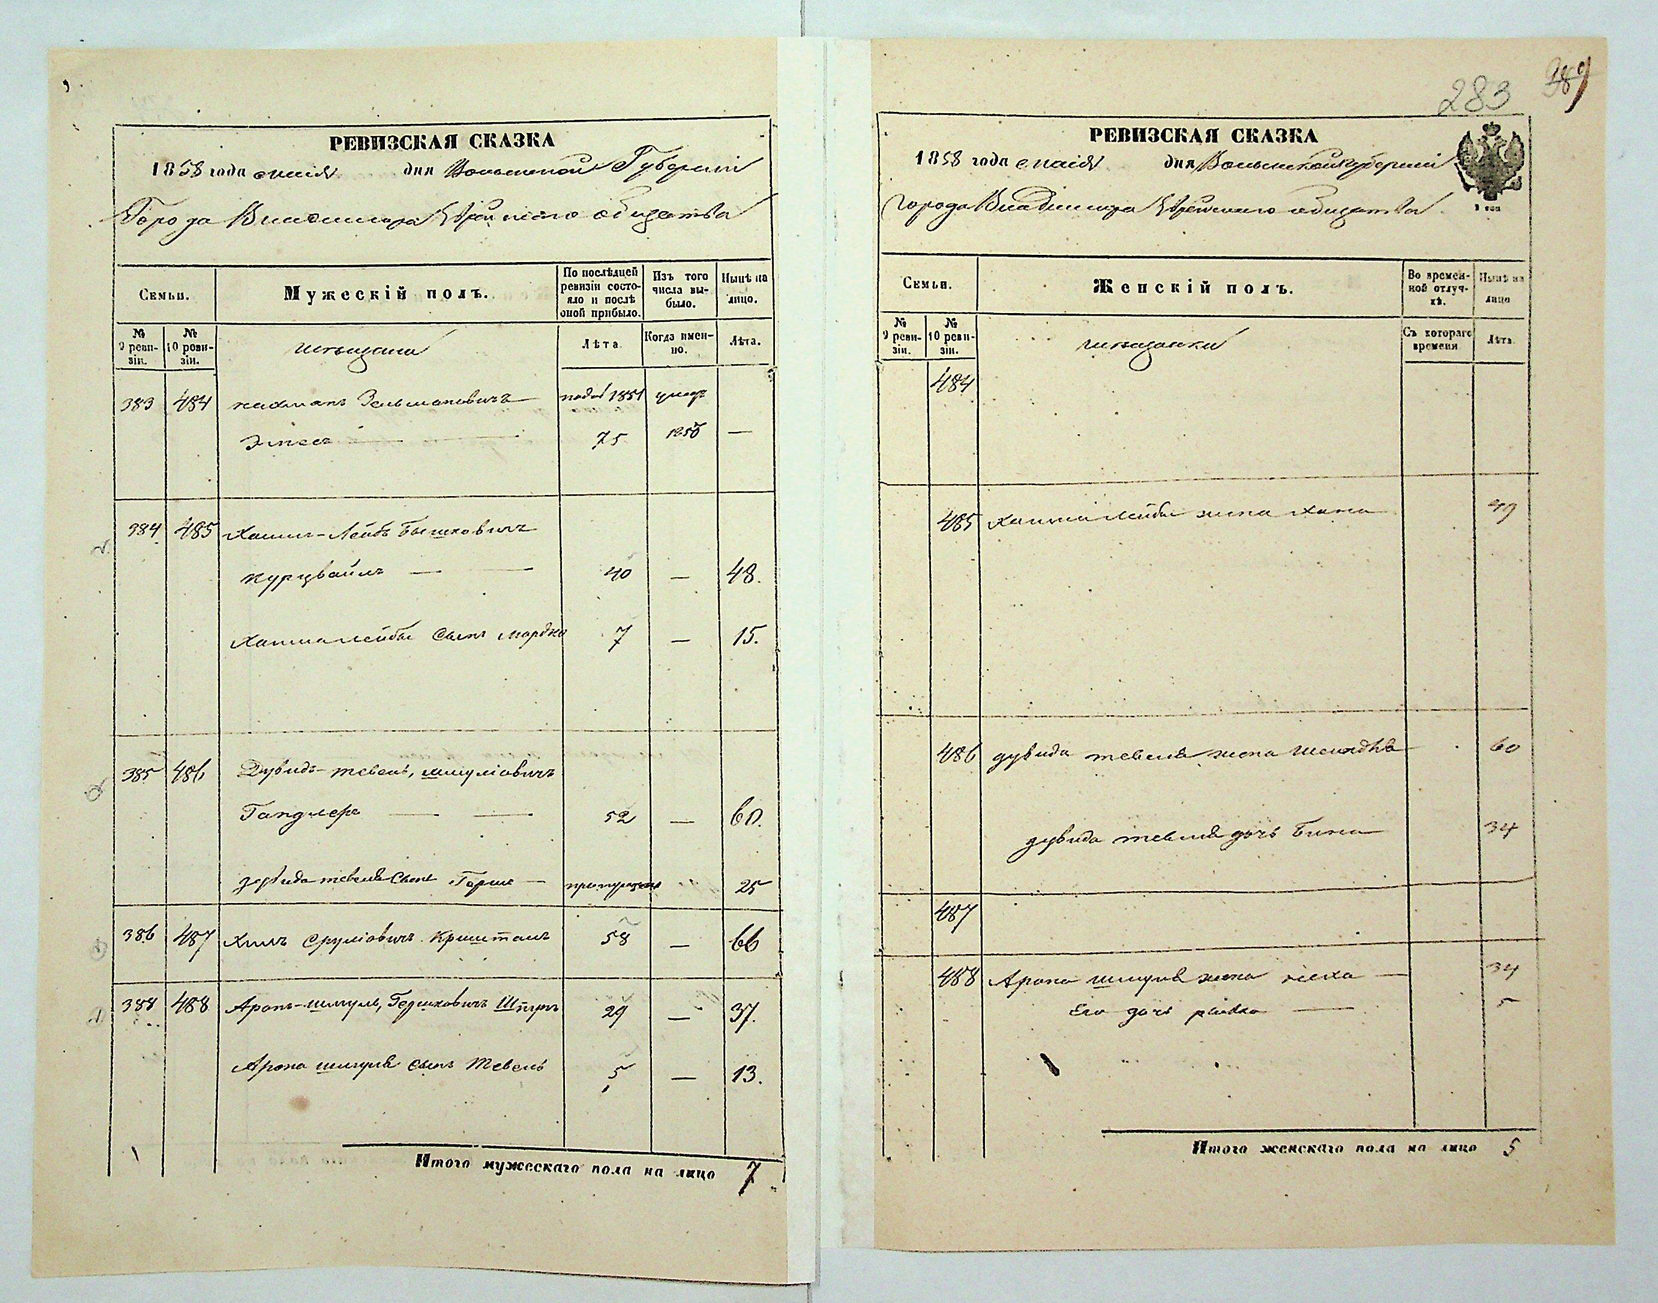 283
389
РЕВИЗСКАЯ СКАЗКА
1858 года маія дня Волынской Губерніи
Города Владимира Еврейского общества
Семьи.
Мужескій полъ.
По послѣдней ревизіи состояло и послѣ оной прибыло.
Изъ того числа выбыло.
Нынѣ на лицо.
№ 9 ревизіи.
№ 10 ревизіи.
мѣщане
Лѣта
Когда именно.
Лѣта.
383 484 Нахманъ Зельмановичъ 1851 умеръ
75 1856 —
384 485 Хаимъ-Лейбъ Бышковичъ
Курцвайль — 40 — 48.
Хаима Лейбы сынъ Мордко 7 — 15.
385 486 Дувидъ-Тевель, Шмуліовичъ
Гандлеръ — 52 — 60.
Дувида Тевеля сынъ Гершъ — пропущенъ 25
386 487 Хилъ Сруліовичъ Кришталъ 58 — 66
388 488 Аронъ-Шмуль, Гершковичъ Шпиръ 29 — 37.
Арона Шмуля сынъ Тевель 5 — 13.
Итого мужескаго пола на лицо 7
РЕВИЗСКАЯ СКАЗКА
1858 года маія дня Волынской губерніи
города Владимира Еврейского общества
Семьи.
Женскій полъ.
Во временной отлучкѣ.
Нынѣ на лицо
№ 9 ревизіи.
№ 10 ревизіи.
мѣщанки
Съ котораго времени
Лѣта
484
485 Хаима Лейбы жена Хана 49
486 Дувида Тевеля жена Шейндля 60
Дувида Тевеля дочь Бина 34
487
488 Арона Шмуля жена 34
Его дочь Ривка — 5
Итого женскаго пола на лицо 5